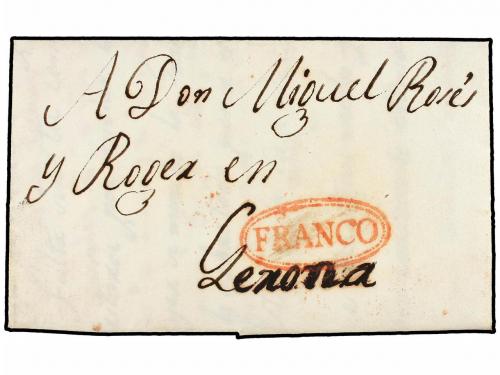 A Don Miguel Rosés
y Roger en
FRANCO
Gerona